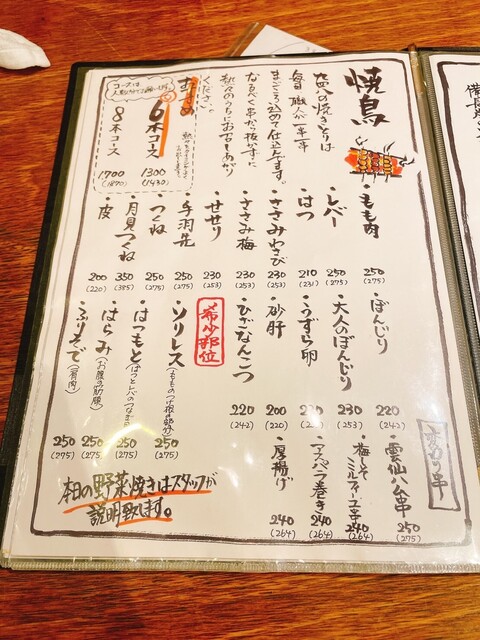 焼鳥
の焼きとりは
毎日 職人が一串一串
まごころ込めて仕込んでます。
なるべく串から抜かずに
熱々のうちにお召しあがり
ください。
おすすめ
コースは
6本コース 1300 (1430)
8本コース 1700 (1870)
・もも肉 250 (275)
・レバー 250 (275)
・はつ 210 (231)
・ささみわさび 230 (253)
・ささみ梅 230 (253)
・せせり 230 (253)
・手羽先 250 (275)
・つくね 250 (275)
・月見つくね 350 (385)
・皮 200 (220)
・ぼんじり 220 (242)
・大人のぼんじり 230 (253)
・うずら卵
・砂肝 200 (220)
・ひざなんこつ 220 (242)
希少部位
・ソリレス (もものつけ根の部分) 250 (275)
・はつもと (はつとレバのつなぎ目) 250 (275)
・はらみ (お腹の筋膜) 250 (275)
・ふりそで (肩肉) 250 (275)
変わり串
・雲仙ハム串 250 (275)
・梅しそミルフィーユ串 240 (264)
・アスパラ巻き 240 (264)
・厚揚げ 240 (264)
本日の野菜焼きはスタッフが
説明致します。